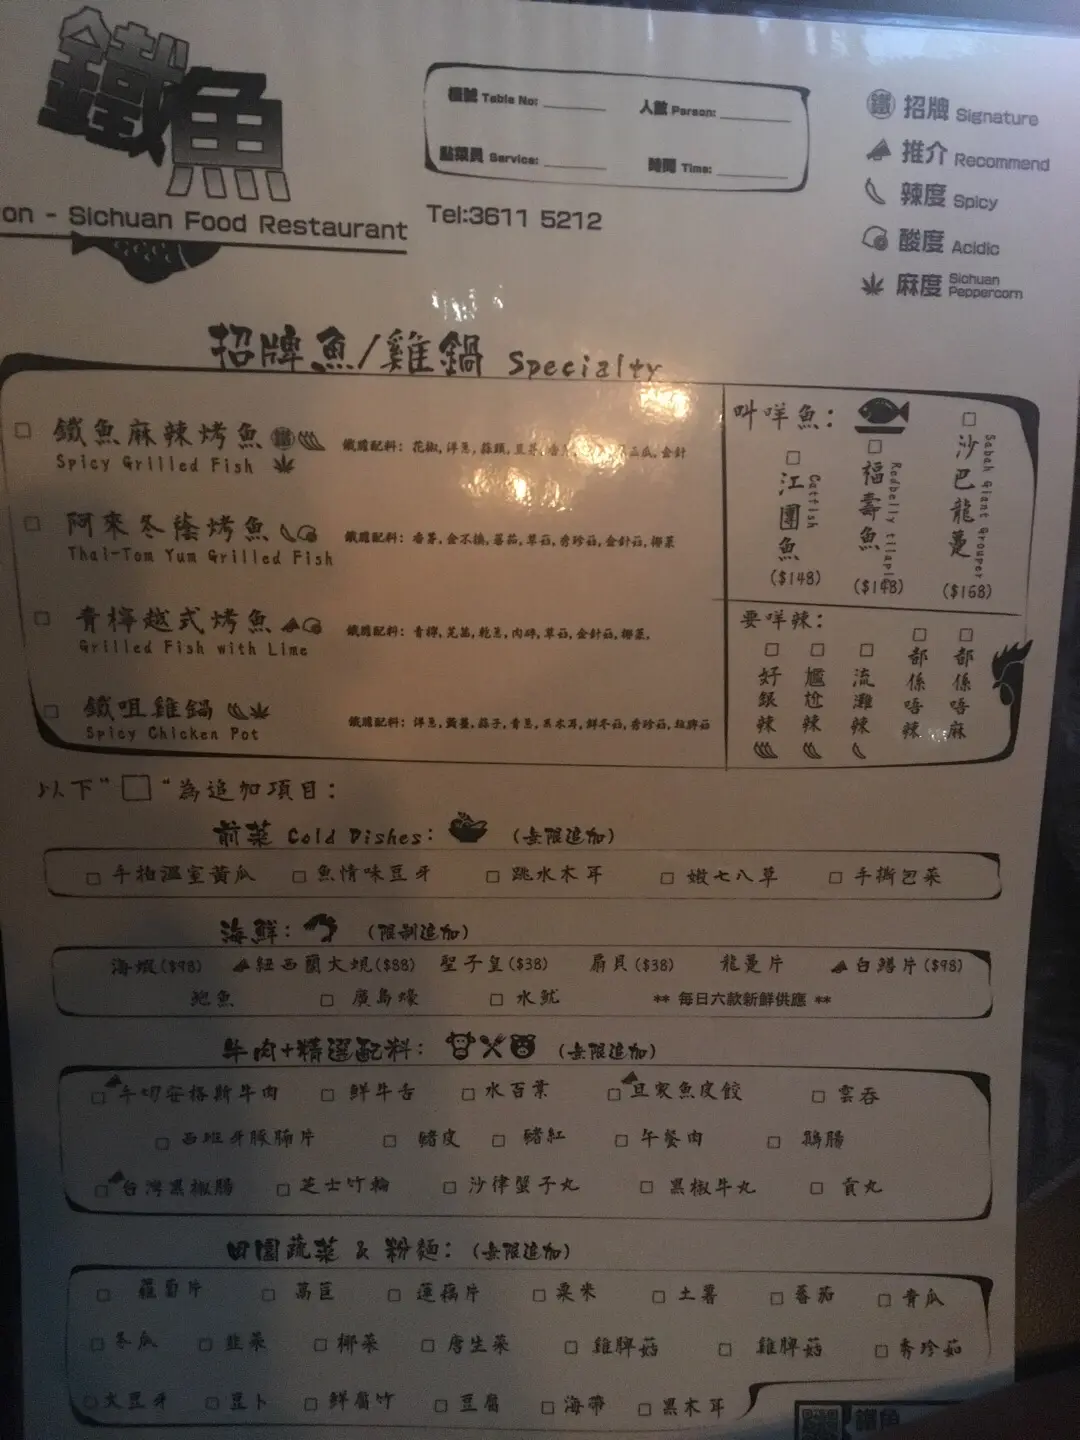 鐵魚
on - Sichuan Food Restaurant
檯號 Table No:
人數 Person:
點菜員 Service:
時間 Time:
Tel:3611 5212
鐵 招牌 Signature
推介 Recommend
辣度 Spicy
酸度 Acidic
麻度 Sichuan Peppercorn
招牌魚/雞鍋 Specialty
鐵魚麻辣烤魚 鐵
Spicy Grilled Fish
鐵膽配料: 花椒,洋蔥,蒜頭,豆芽,
瓜,金針
阿來冬蔭烤魚
Thai-Tom Yum Grilled Fish
鐵膽配料: 香茅,金不換,蕃茄,草菇,秀珍菇,金針菇,椰菜
青檸越式烤魚
Grilled Fish with Lime
鐵膽配料: 青檸,芫茜,乾蔥,肉碎,草菇,金針菇,椰菜,
鐵咀雞鍋
Spicy Chicken Pot
鐵膽配料: 洋蔥,黃薑,蒜子,青蔥,黑木耳,鮮冬菇,秀珍菇,
叫咩魚:
江團魚 Catfish ($148)
福壽魚 Redbelly tilapi ($148)
沙巴龍躉 Sabah Giant Grouper ($168)
要咩辣:
好銀辣
尷尬辣
流灘辣
都係唔辣
都係唔麻
以下"□"為追加項目:
前菜 Cold Dishes: (無限追加)
手拍溫室黃瓜 魚情味豆牙 跳水木耳 嫩七八草 手撕包菜
海鮮: (限制追加)
海蝦($98) 紐西蘭大蜆($88) 聖子皇($38) 扇貝($38) 龍躉片 白鱔片($98)
鮑魚 廣島蠔 水魷 ** 每日六款新鮮供應 **
牛肉+精選配料: (無限追加)
手切安格斯牛肉 鮮牛舌 水百葉 旦家魚皮餃 雲吞
西班牙豚腩片 豬皮 豬紅 午餐肉 鴨腸
台灣黑椒腸 芝士竹輪 沙律蟹子丸 黑椒牛丸 貢丸
田園蔬菜 & 粉麵: (無限追加)
蘿蔔片 萵苣 蓮藕片 粟米 土薯 蕃茄 青瓜
冬瓜 韭菜 椰菜 唐生菜 雞脾菇 雞脾菇 秀珍茹
大豆牙 豆卜 鮮腐竹 豆腐 海帶 黑木耳
鐵魚